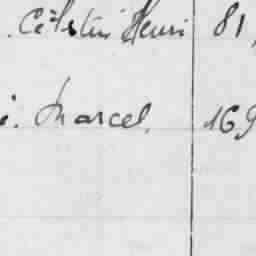 . Célestin Henri 81,
i. Marcel. 169